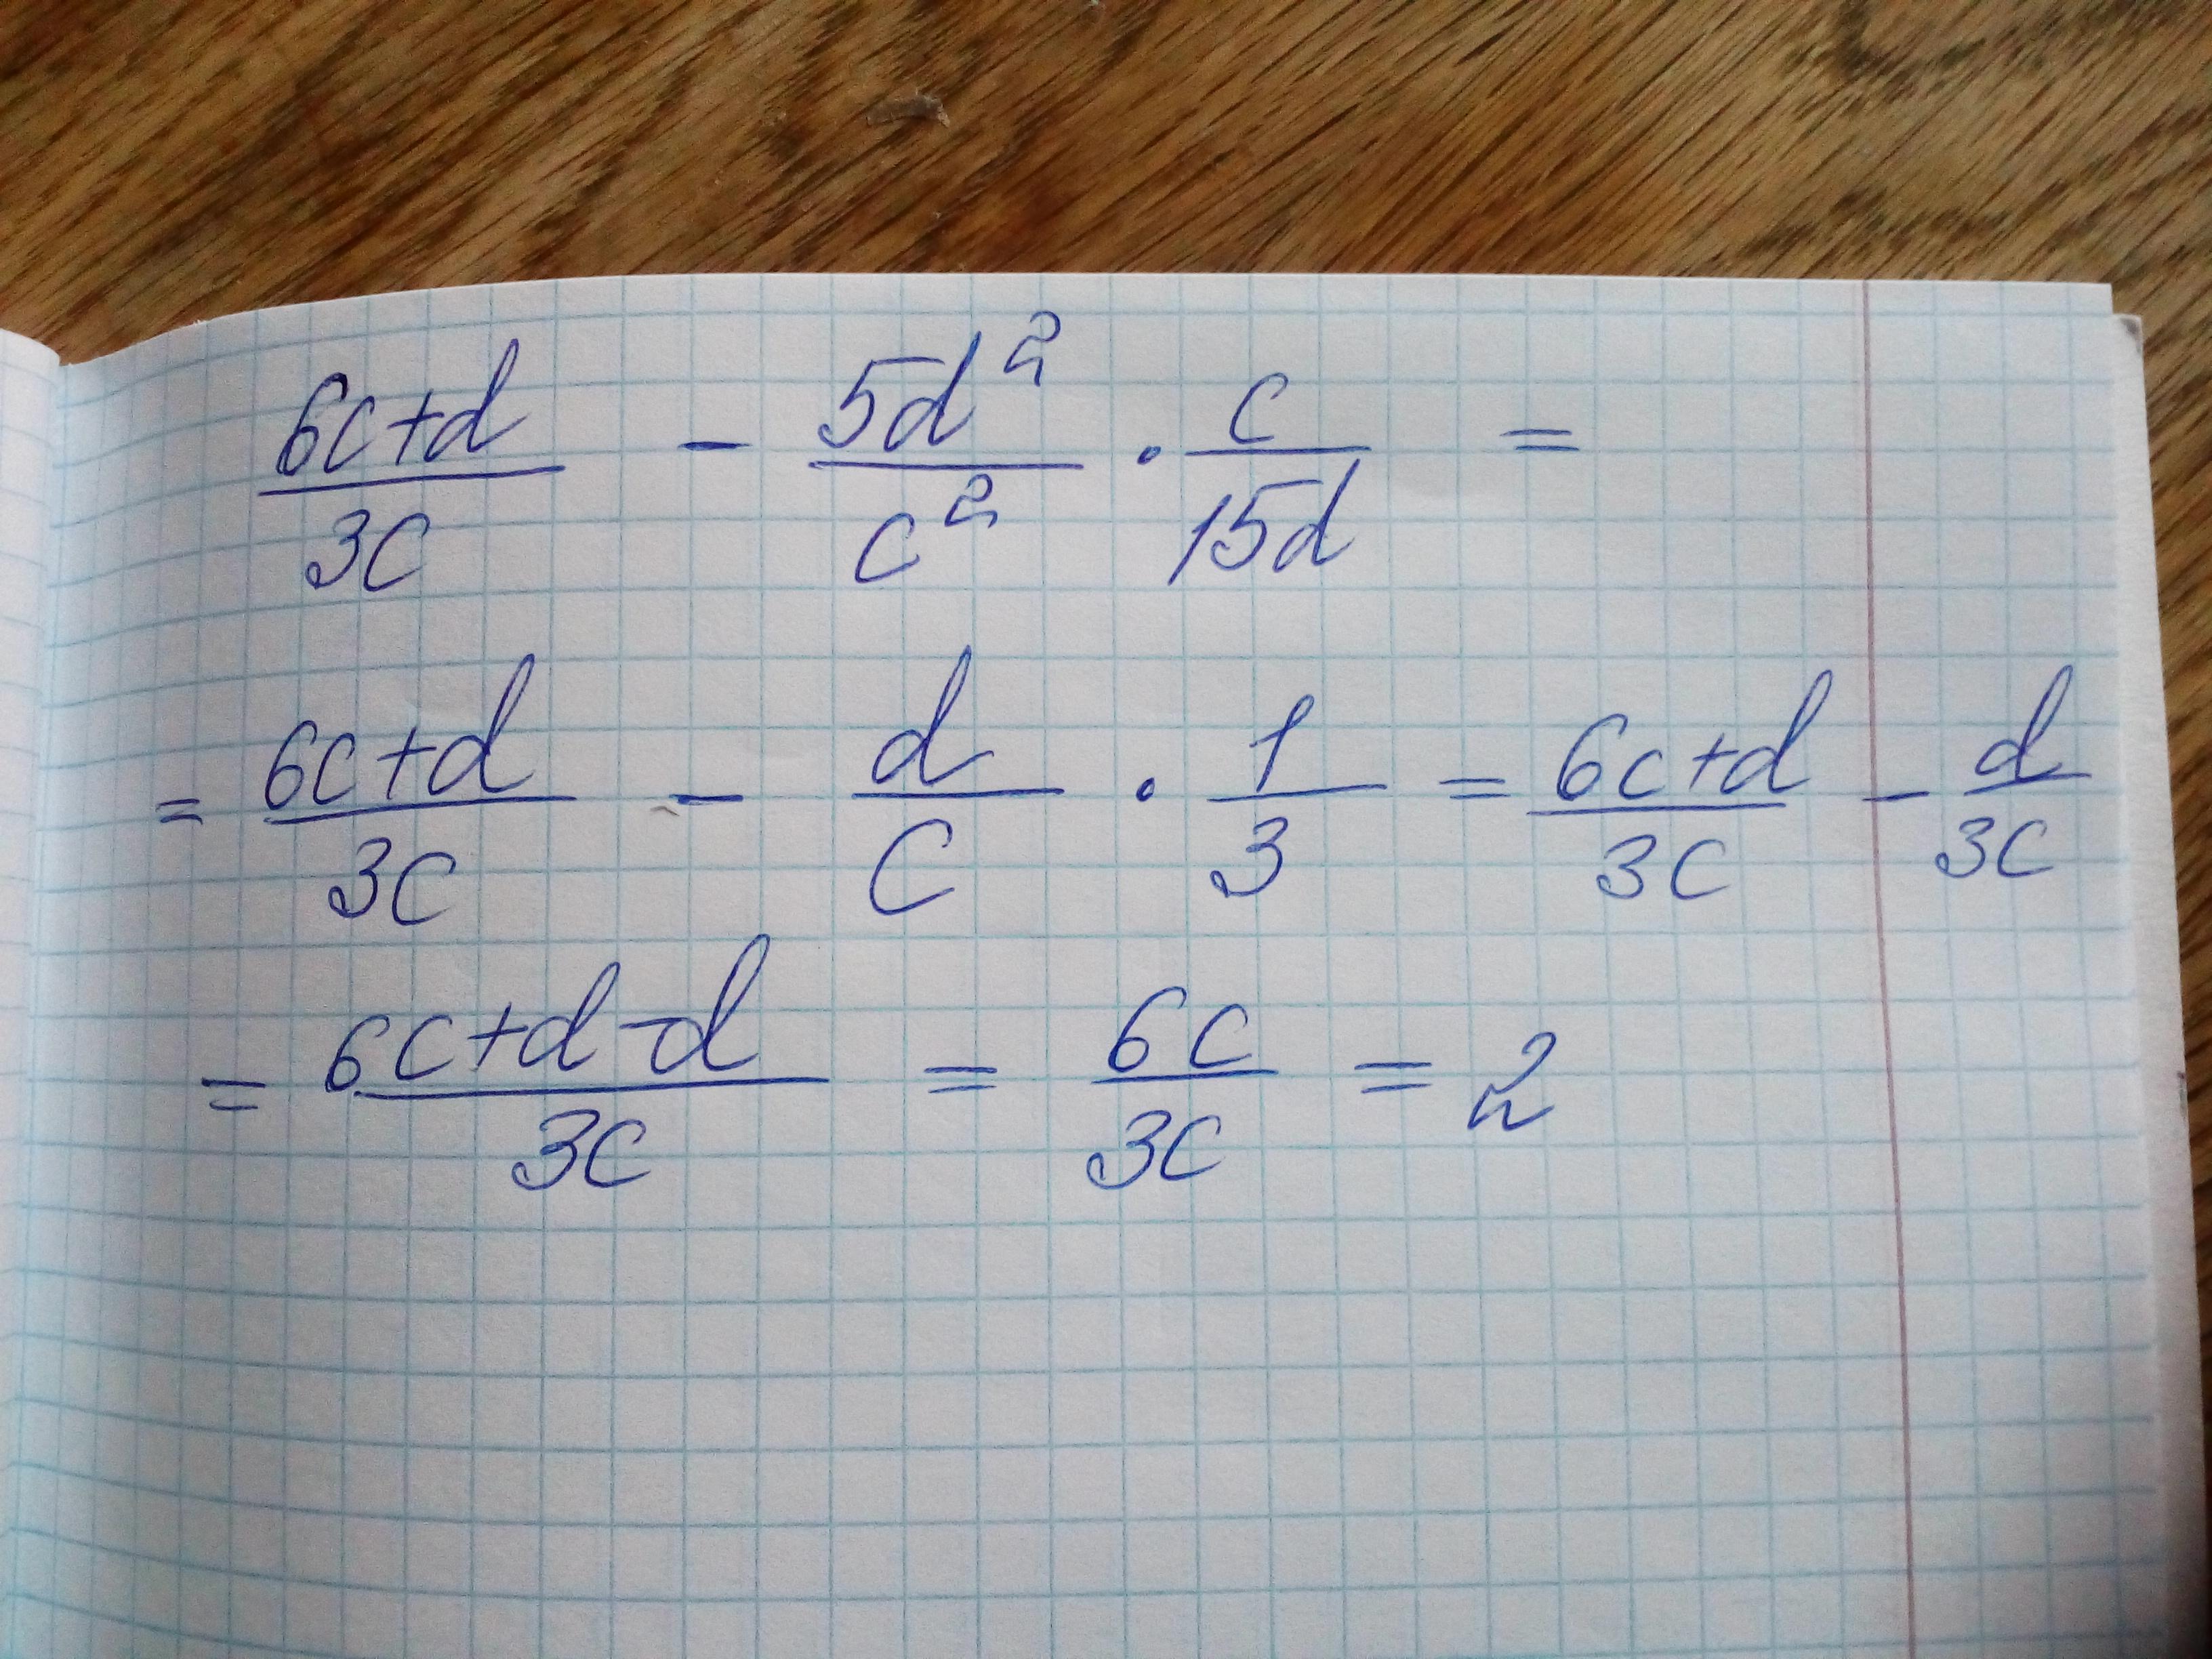 (6c+d)/(3c) - (5d²)/(c²) · c/(15d) =
= (6c+d)/(3c) - d/c · 1/3 = (6c+d)/(3c) - d/(3c)
= (6c+d-d)/(3c) = (6c)/(3c) = 2